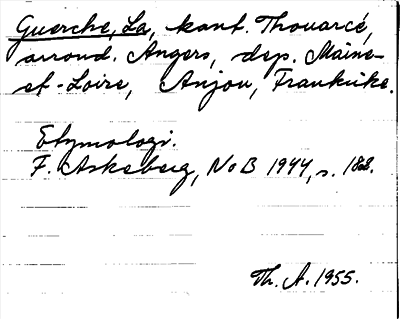 Guerche, La, kant. Thouarcé,
arrond. Angers, dep. Maine-
et-Loire, Anjou, Frankrike.
Etymologi.
F. Askeberg, NoB 1944, s. 188.
Th. A. 1955.